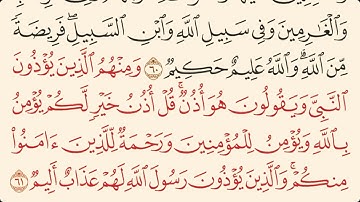 وَٱلْغَٰرِمِينَ وَفِى سَبِيلِ ٱللَّهِ وَٱبْنِ ٱلسَّبِيلِ ۖ فَرِيضَةً
مِّنَ ٱللَّهِ ۗ وَٱللَّهُ عَلِيمٌ حَكِيمٌ ٦٠ وَمِنْهُمُ ٱلَّذِينَ يُؤْذُونَ
ٱلنَّبِىَّ وَيَقُولُونَ هُوَ أُذُنٌ ۚ قُلْ أُذُنُ خَيْرٍ لَّكُمْ يُؤْمِنُ
بِٱللَّهِ وَيُؤْمِنُ لِلْمُؤْمِنِينَ وَرَحْمَةٌ لِّلَّذِينَ ءَامَنُوا۟
مِنكُمْ ۚ وَٱلَّذِينَ يُؤْذُونَ رَسُولَ ٱللَّهِ لَهُمْ عَذَابٌ أَلِيمٌ ٦١